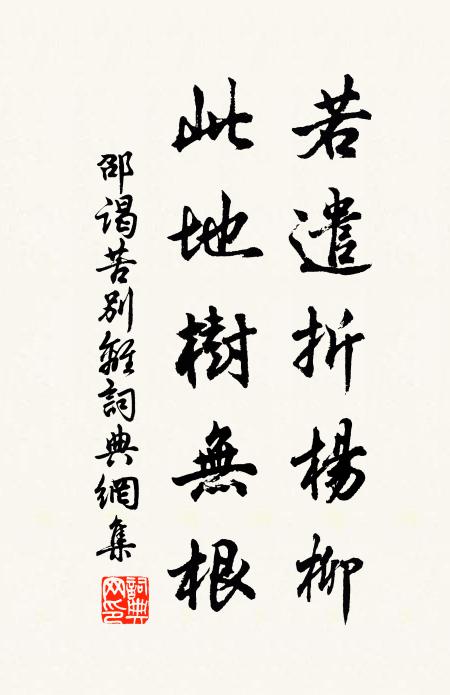 若遣折楊柳
此地樹無根
邵謁苦別離詞典網集
詞典網印